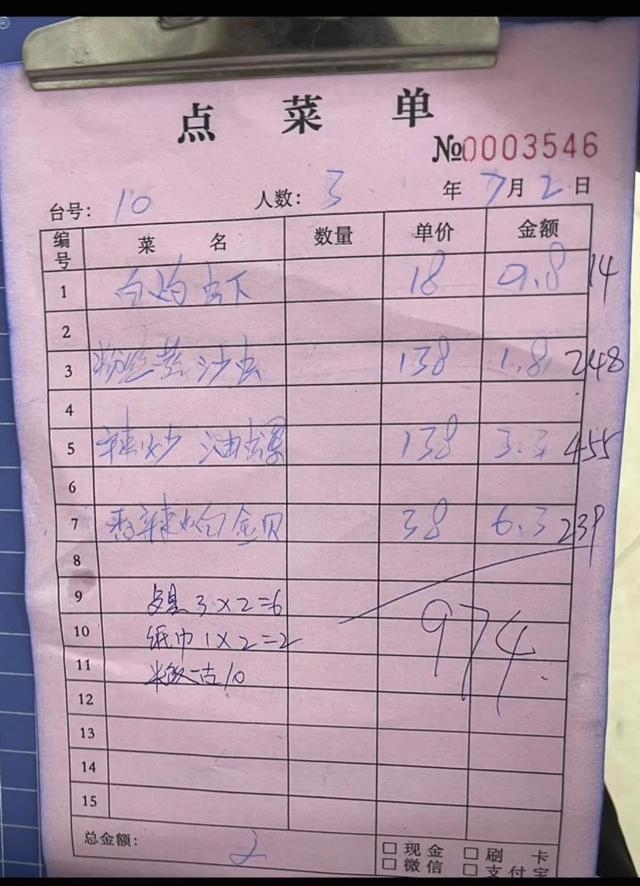 点菜单
№0003546
台号: 10 人数: 3 年 7月2日
编号 菜名 数量 单价 金额
1 白灼虾 18 0.8 14
2
3 粉丝蒸沙虫 138 1.8 248
4
5 辣炒油螺 138 3.3 455
6
7 香辣炒白金贝 38 6.3 239
8
9 3×2=6
10 纸巾1×2=2 974
11 米饭一古10
12
13
14
15
总金额: 2 □现金 □刷卡
□微信 □支付宝